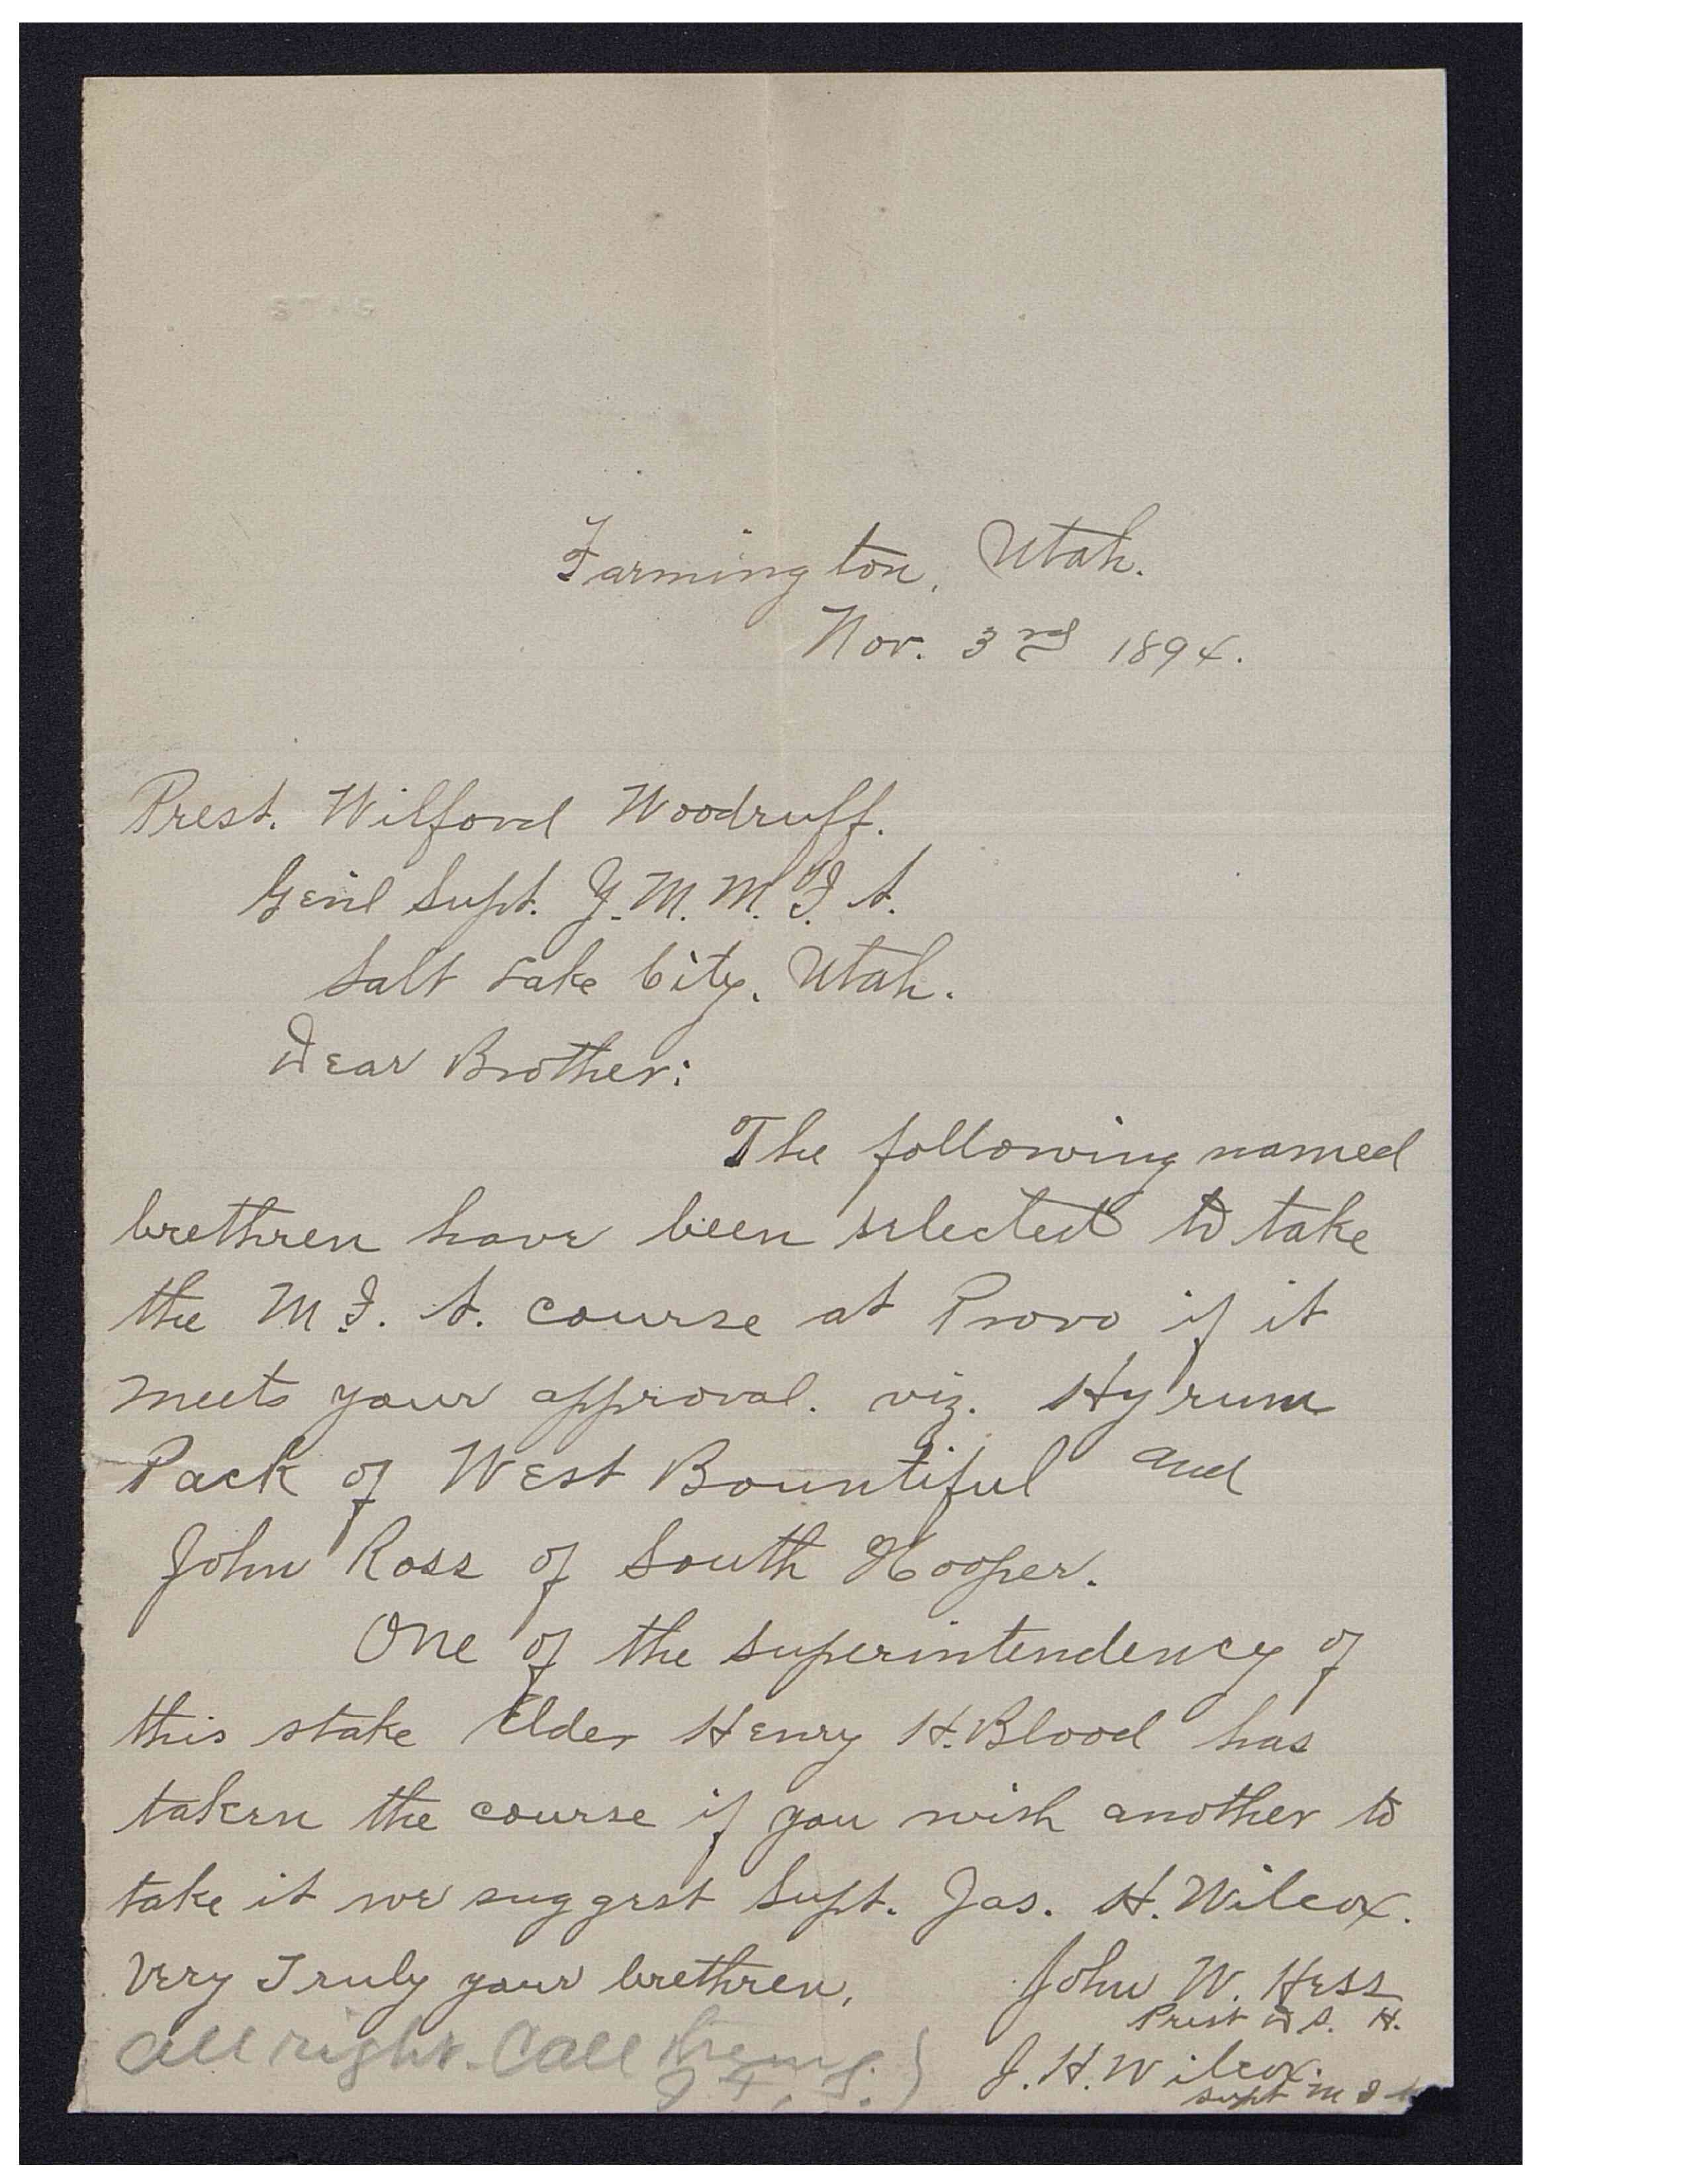 Farmington, Utah.
Nov. 3rd 1894.
Prest. Wilford Woodruff.
Gen'l Supt. Y. M. M. I. A.
Salt Lake City, Utah.
Dear Brother:
The following named
brethren have been selected to take
the M. I. A. course at Provo if it
meets your approval. viz. Hyrum
Pack of West Bountiful and
John Ross of South Hooper.
One of the superintendency of
this stake Elder Henry H. Blood has
taken the course if you wish another to
take it we suggest Supt. Jas. H. Wilcox.
Very Truly your brethren,
John W. Hess
Prest D. S.
J. H. Wilcox.
Supt M I A
All right. Call them